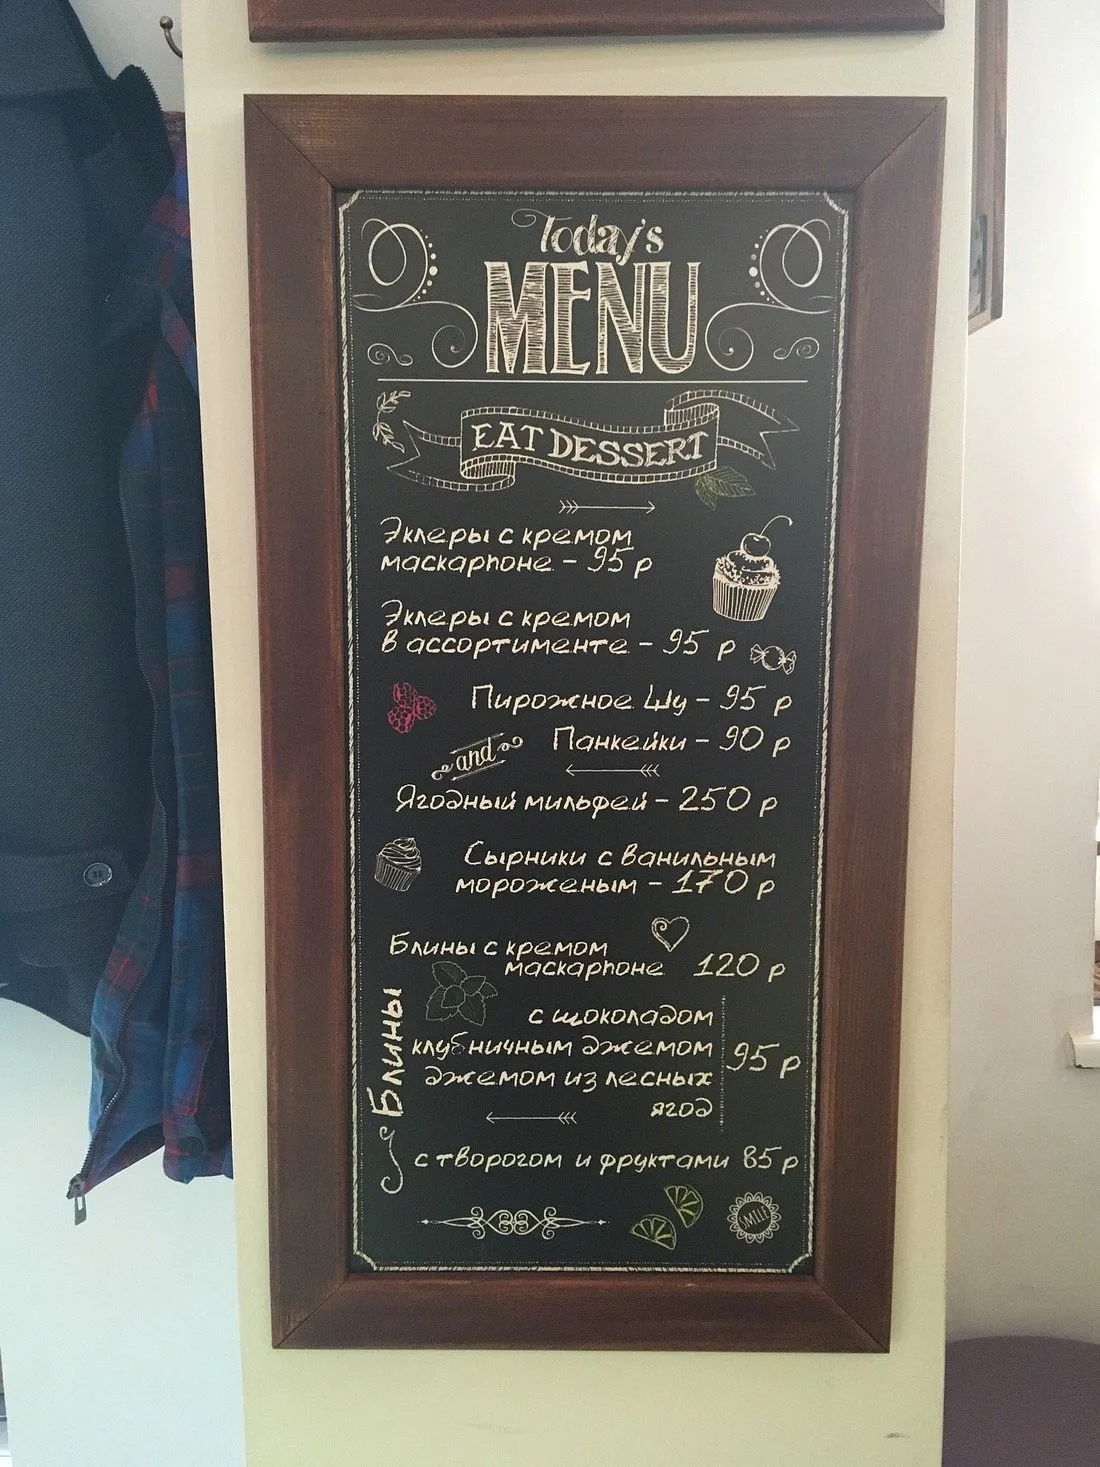 Today's
MENU
EAT DESSERT
Эклеры с кремом
маскарпоне – 95 р
Эклеры с кремом
в ассортименте – 95 р
Пирожное Шу – 95 р
Панкейки – 90 р
and
Ягодный мильфей – 250 р
Сырники с ванильным
мороженым – 170 р
Блины с кремом
маскарпоне 120 р
Блины
с шоколадом
клубничным джемом 95 р
джемом из лесных
ягод
с творогом и фруктами 85 р
SMILE